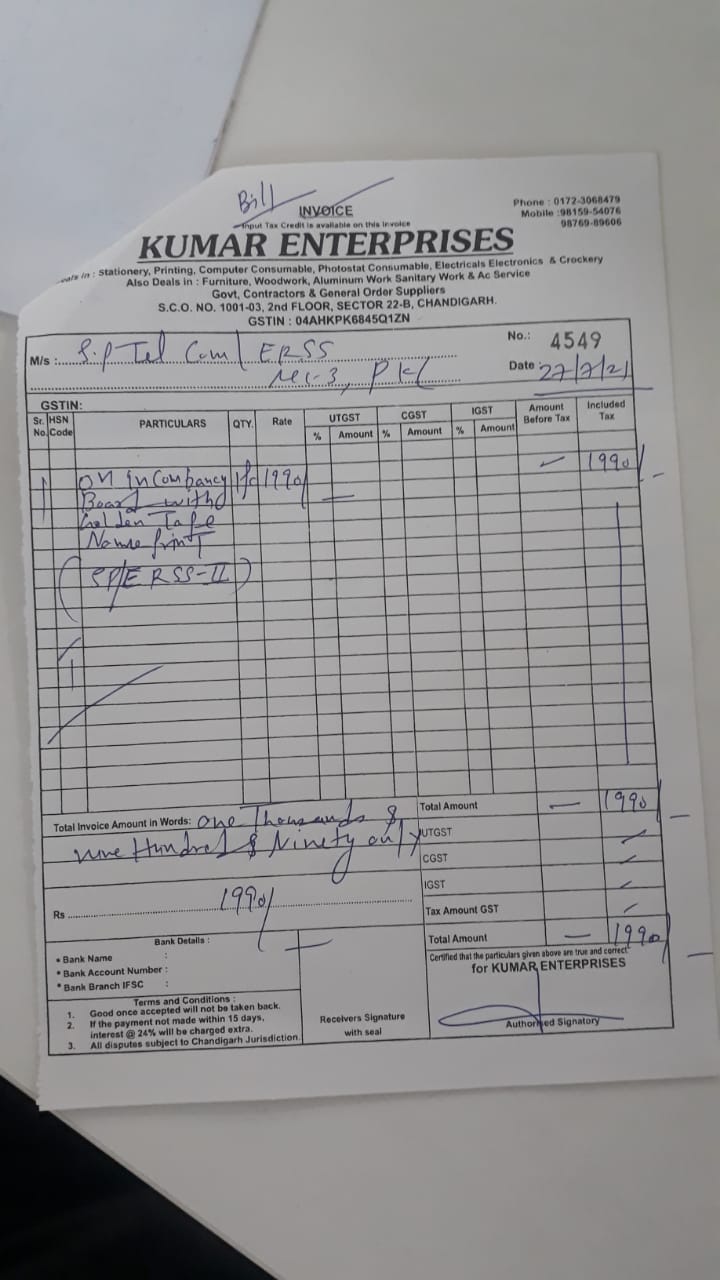 Bill
INVOICE
Input Tax Credit is available on this Invoice
Phone : 0172-3068479
Mobile :98159-54076
98769-89606
KUMAR ENTERPRISES
in : Stationery, Printing, Computer Consumable, Photostat Consumable, Electricals Electronics & Crockery
Also Deals in : Furniture, Woodwork, Aluminum Work Sanitary Work & Ac Service
Govt, Contractors & General Order Suppliers
S.C.O. NO. 1001-03, 2nd FLOOR, SECTOR 22-B, CHANDIGARH.
GSTIN : 04AHKPK6845Q1ZN
M/s : S.P Tel Com/ ERSS
No.: 4549
PKL
Date : 27/7/21
GSTIN:
Sr. No. HSN Code PARTICULARS QTY. Rate UTGST CGST IGST Amount Before Tax Included Tax
% Amount % Amount % Amount
1 on incumbancy 1 1990/ — 1990/-
Board with
Golden Tape
Name print
(SP/ERSS-II)
Total Invoice Amount in Words: One Thousands &
Nine Hundred & Ninety only
Total Amount — 1990/-
UTGST
CGST
IGST
Tax Amount GST
Total Amount — 1990/-
Rs 1990/-
Bank Details :
• Bank Name :
• Bank Account Number :
• Bank Branch IFSC :
Terms and Conditions :
1. Good once accepted will not be taken back.
2. If the payment not made within 15 days,
interest @ 24% will be charged extra.
3. All disputes subject to Chandigarh Jurisdiction.
Receivers Signature
with seal
Certified that the particulars given above are true and correct
for KUMAR ENTERPRISES
Authorised Signatory